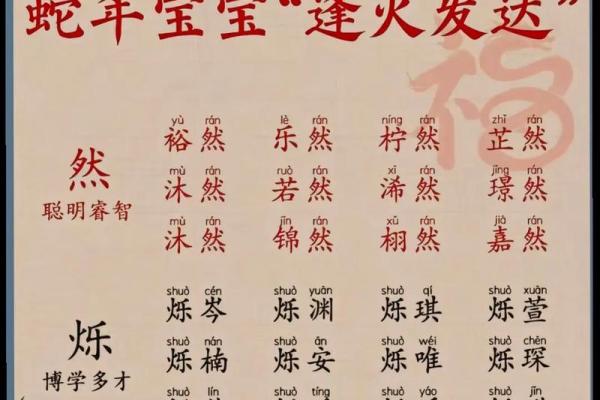 蛇年宝宝“逢火发达”
福
yù rán lè rán níng rán zhī rán
裕然 乐然 柠然 芷然
然
mù rán ruò rán xī rán jǐng rán
沐然 若然 浠然 璟然
聪明睿智
mù rán jǐn rán xǔ rán jiā rán
沐然 锦然 栩然 嘉然
shuò cén shuò yuān shuò qí shuò xuān
烁岑 烁渊 烁琪 烁萱
烁
shuò nán shuò ān shuò wéi shuò chēn
烁楠 烁安 烁唯 烁琛
博学多才
shuò lín shuò tíng shuò yáo shuò jǐn